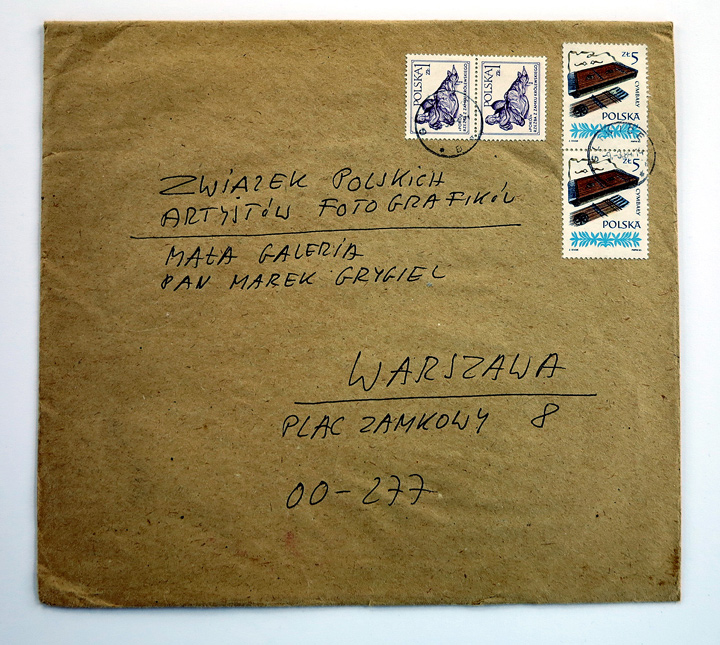 POLSKA 1 ZŁ
POLSKA 1 ZŁ
ZŁ 5
CYMBAŁY
POLSKA
ZŁ 5
CYMBAŁY
POLSKA
ZWIAZEK POLSKICH
ARTYSTÓW FOTOGRAFIKÓW
MAŁA GALERIA
PAN MAREK GRYGIEL
WARSZAWA
PLAC ZAMKOWY 8
00-277